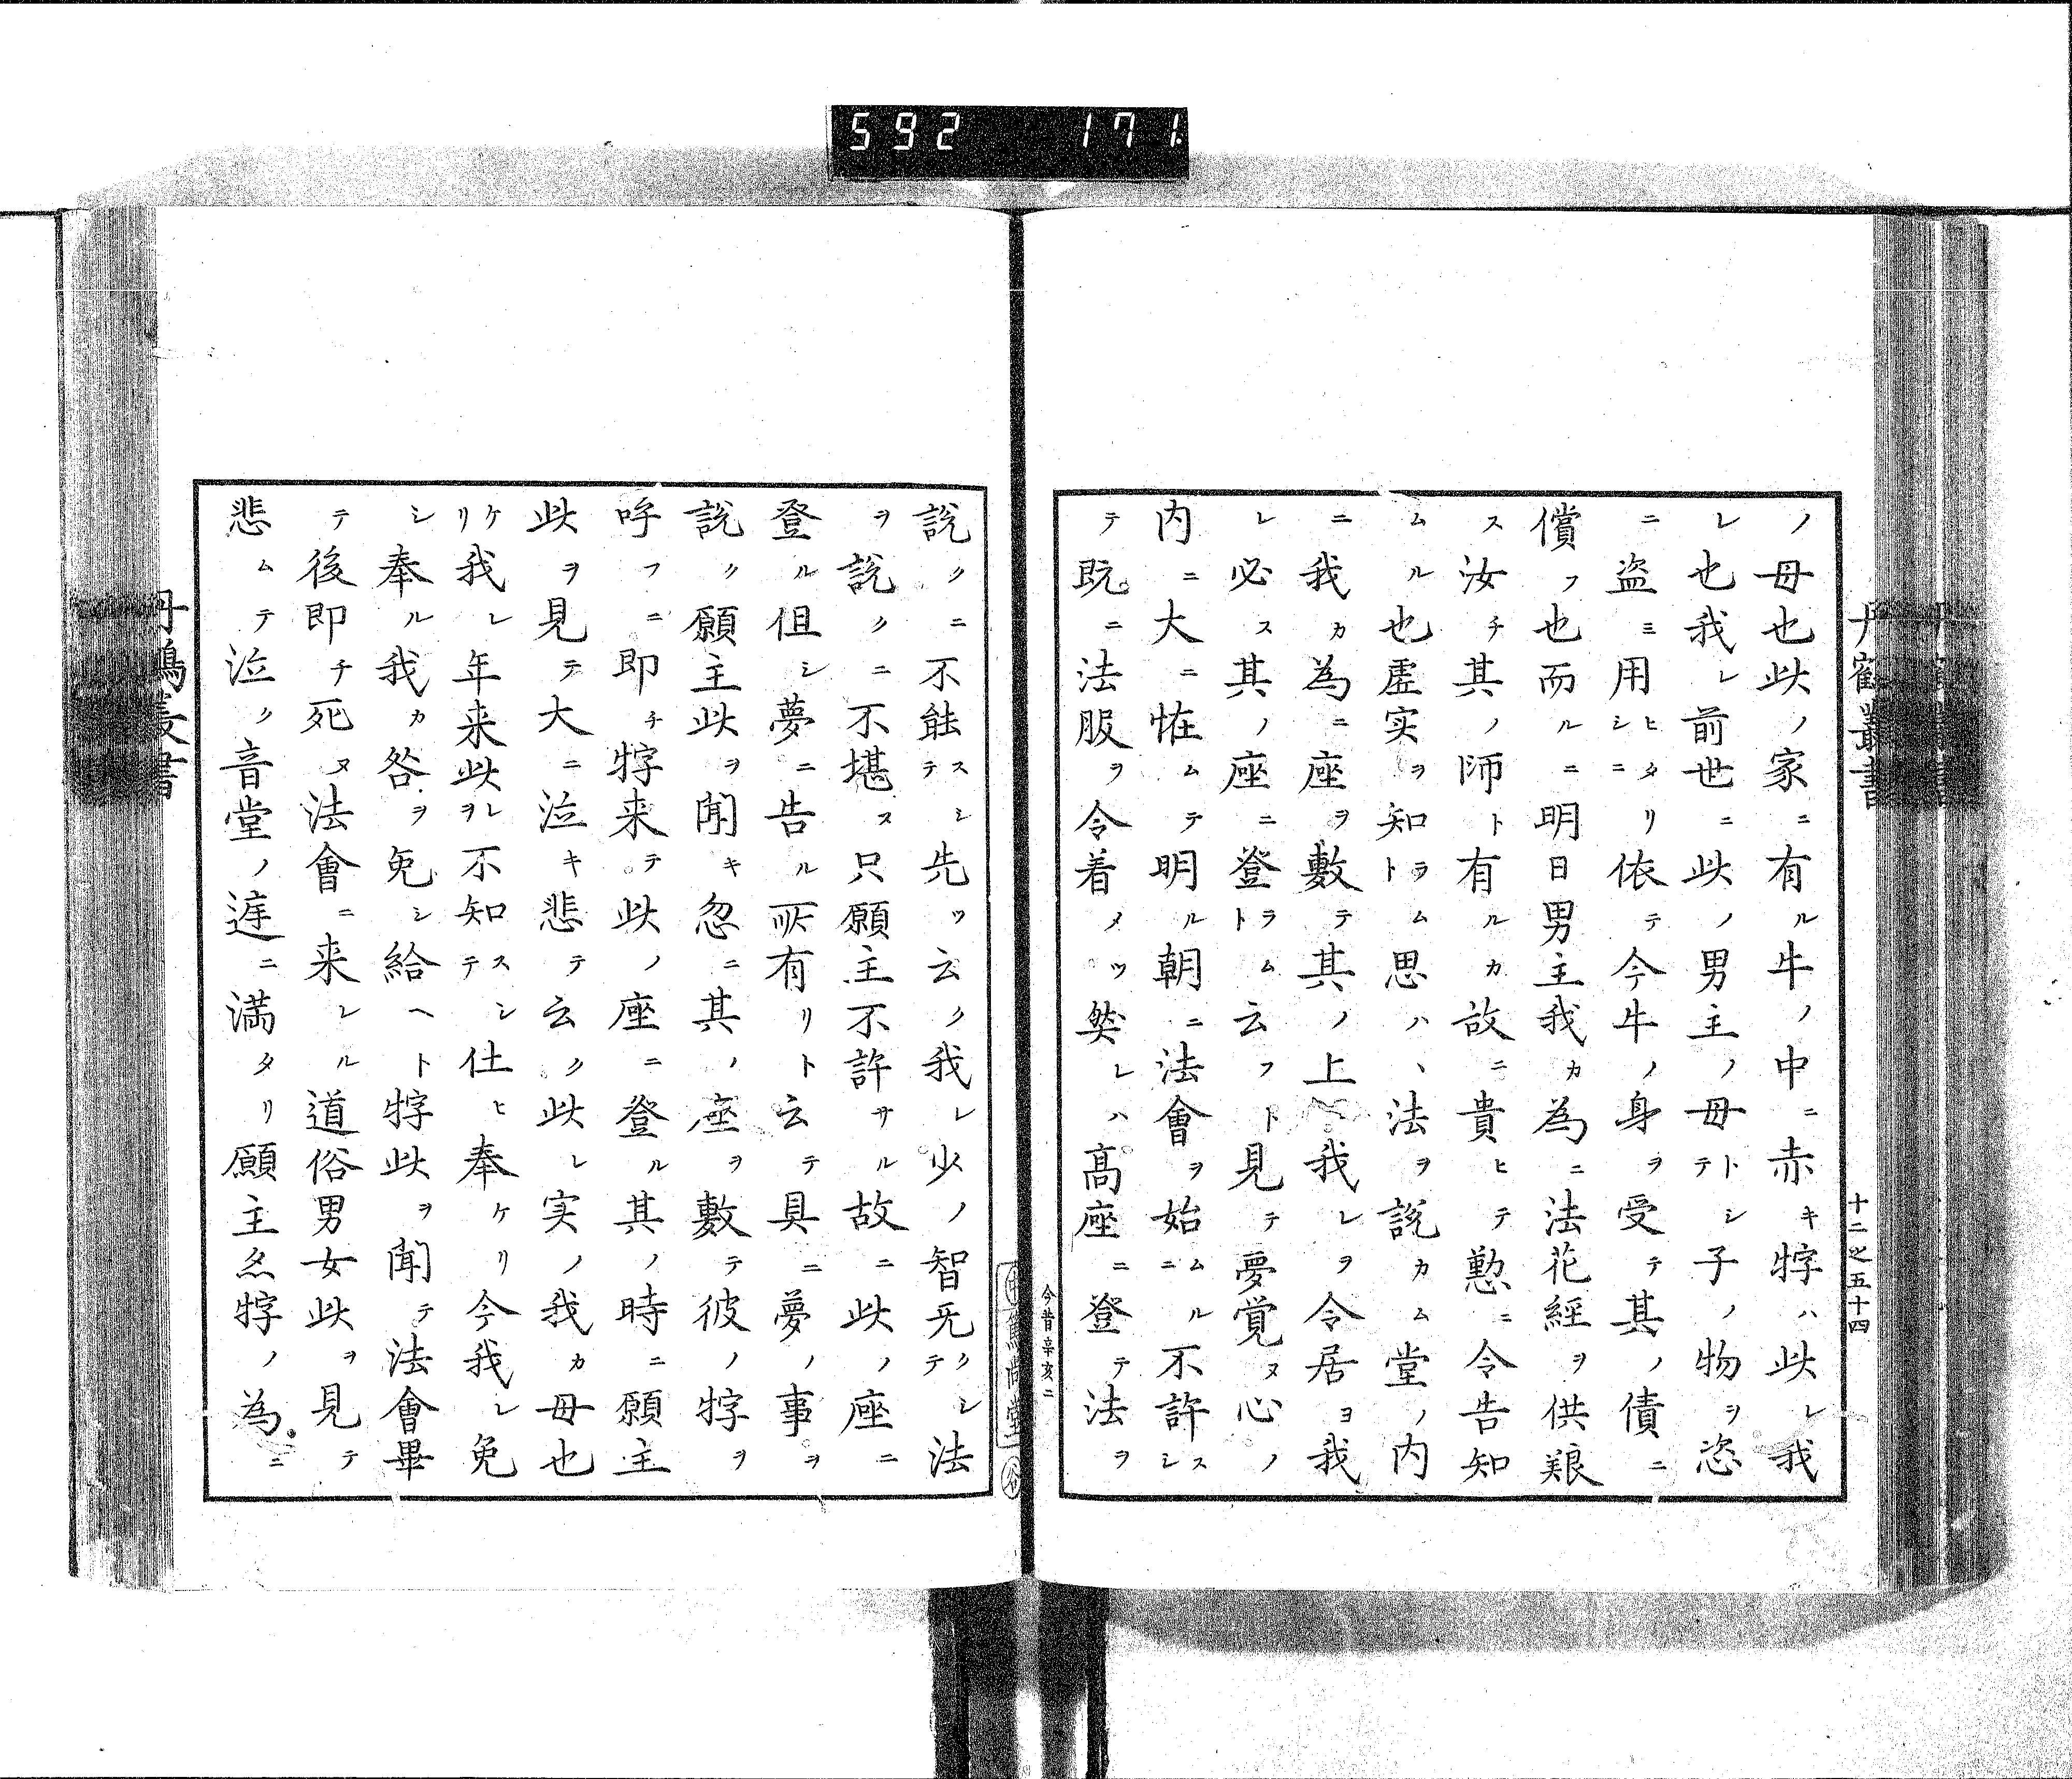 592 171
丹鶴叢書
十二之五十四
ノ母也此ノ家ニ有ル牛ノ中ニ赤キ牸ハ此レ我
レ也我レ前世ニ此ノ男主ノ母トシテ子ノ物ヲ恣
ニ盗ミ用ヒタリシニ依テ今牛ノ身ヲ受テ其ノ債ニ
償フ也而ルニ明日男主我カ為ニ法花經ヲ供艱
ス汝チ其ノ師ト有ルカ故ニ貴ヒテ懃ニ令告知
ムル也虚实ヲ知ラムト思ハ、法ヲ說カム堂ノ内
ニ我カ為ニ座ヲ敷テ其ノ上ニ我レヲ令居ヨ我
レ必ス其ノ座ニ登ラムト云フト見テ夢覚ヌ心ノ
内ニ大ニ恠ムテ明ル朝ニ法會ヲ始ムルニ不許スシ
テ既ニ法服ヲ令着メツ然レハ髙座ニ登テ法ヲ
今昔辛亥ニ
說クニ不能スシテ先ツ云ク我レ少ノ智旡クシテ法
ヲ說クニ不堪ス只願主不許サル故ニ此ノ座ニ
登ル但シ夢ニ告ル所有リト云テ具ニ夢ノ事ヲ
說ク願主此ヲ聞キ忽ニ其ノ座ヲ敷テ彼ノ牸ヲ
呼フニ即チ牸来テ此ノ座ニ登ル其ノ時ニ願主
此ヲ見テ大ニ泣キ悲テ云ク此レ実ノ我カ母也
ケリ我レ年来此レヲ不知スシテ仕ヒ奉ケリ今我レ免
シ奉ル我カ咎ヲ免シ給ヘト牸此ヲ聞テ法會畢
テ後即チ死ヌ法會ニ来レル道俗男女此ヲ見テ
悲ムテ泣ク音堂ノ遅ニ満タリ願主尓牸ノ為ニ
丹鶴叢書